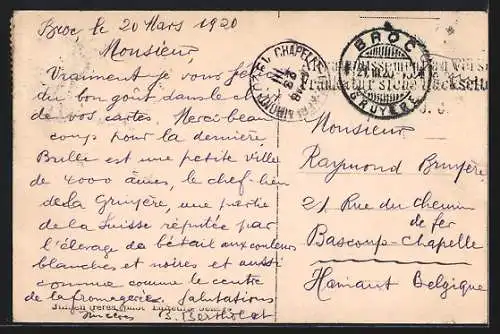 Broc, le 20 Mars 1920
Monsieur,
Vraiment je vous
du bon goût dans le
de vos cartes. Merci beau
coup pour la dernière,
Bulle est une petite ville
de 4000 âmes, le chef-lieu
de la Gruyère, une partie
de la Suisse réputée par
l'élevage de bétail aux couleurs
blanches et noires et aussi
comme le centre
de la fromagerie. Salutations
sincères S. Bertholet
CHAPELLE
BROC
21 III 20
GRUYERE
Rückseite
Monsieur
Raymond Bruyère,
21 Rue du Chemin
de fer
Bascoup-Chapelle
Hainaut Belgique